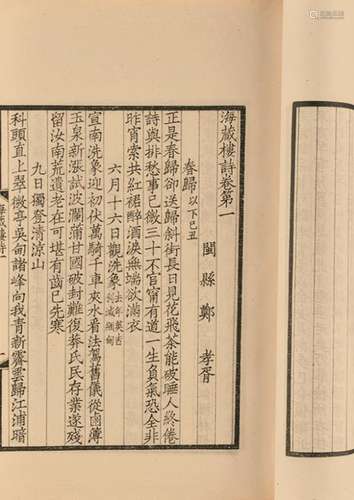 海藏樓詩卷第一
閩縣鄭孝胥
春歸以下己丑
正是春歸卻送歸斜街長日見花飛茶能破睡人終倦
詩與排愁事已微三十不官甯有道一生負氣恐全非
昨宵索共紅裙醉酒淚無端欲滿衣
六月十六日觀洗象
宣南洗象迎初伏萬騎千車夾水看法駕舊儀從鹵簿
玉泉新漲試波瀾蒲甘國破封難復莽氏民存業遂殘
留汝南荒遺老在可堪有齒已先寒
九日獨登清涼山
科頭直上翠微亭吳甸諸峰向我青新霽雲歸江浦暗